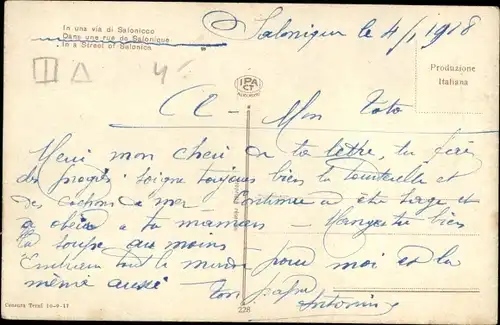 In una via di Salonicco
Dans une rue de Salonique
In a Street of Salonica
Salonique le 4/1 1918
Produzione
Italiana
IPA
CT
A Mon Toto
Merci mon cheri de ta lettre, tu fais
des progrès. Soigne toujours bien la tourterelle et
des cochons de mer. Continue a etre sage et
a obeir a ta maman - Mange tu bien
la soupe au moins
Embrasse tout le monde pour moi et la
même aussi ton papa
Antonin
Censura Terni 10-9-17
228